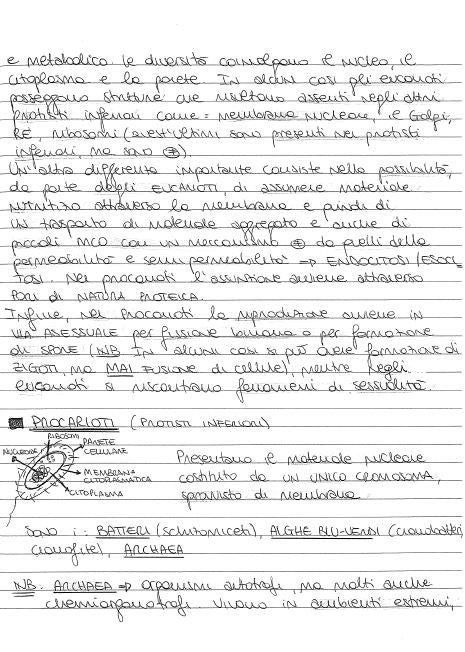 e metabolico. Le diversità coinvolgono il nucleo, il
citoplasma e la parete. In alcuni casi gli eucarioti
posseggono strutture che risultano assenti negli altri
protisti inferiori come: membrana nucleare, il Golgi,
RE, ribosomi (quest'ultimi sono presenti nei protisti
inferiori, ma sono ≠).
Un'altra differenza importante consiste nella possibilità,
da parte degli EUCARIOTI, di assumere materiale
nutritizio attraverso la membrana e quindi di
un trasporto di materiale aggregato e anche di
piccoli MCO con un meccanismo ≠ da quelli della
permeabilità e semipermeabilità → ENDOCITOSI (ESOCI-
TOSI. Nei procarioti l'assunzione avviene attraverso
PORI di NATURA PROTEICA.
Infine, nei Procarioti la riproduzione avviene in
VIA ASESSUALE per fissione binaria o per formazione
di SPORE (NB In alcuni casi si può avere formazione di
ZIGOTI, ma MAI FUSIONE di cellule), mentre negli
eucarioti si riscontrano fenomeni di sessualità.
PROCARIOTI (PROTISTI INFERIORI)
RIBOSOMI
NUCLEOIDE
PARETE CELLULARE
MEMBRANA CITOPLASMATICA
CITOPLASMA
Presentano il materiale nucleare
costituito da un UNICO CROMOSOMA,
sprovvisto di membrana
Sono i: BATTERI (schizomiceti), ALGHE BLU-VERDI (cianobatteri,
cianofite), ARCHAEA
NB: ARCHAEA → organismi autotrofi, ma molti anche
chemiorganotrofi. Vivono in ambienti estremi,